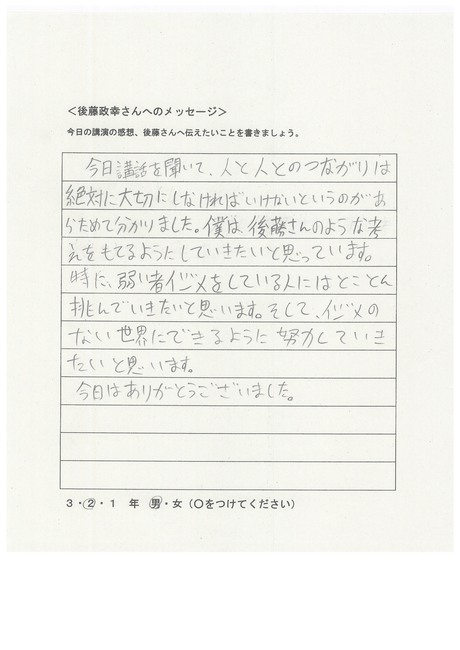 ＜後藤政幸さんへのメッセージ＞
今日の講演の感想、後藤さんへ伝えたいことを書きましょう。
今日講話を聞いて、人と人とのつながりは
絶対に大切にしなければいけないというのがあ
らためて分かりました。僕は、後藤さんのような考
えをもてるようにしていきたいと思っています。
特に、弱い者イジメをしている人にはとことん
挑んでいきたいと思います。そして、イジメの
ない世界にできるように努力していき
たいと思います。
今日はありがとうございました。
3・2・1 年 男・女（○をつけてください）